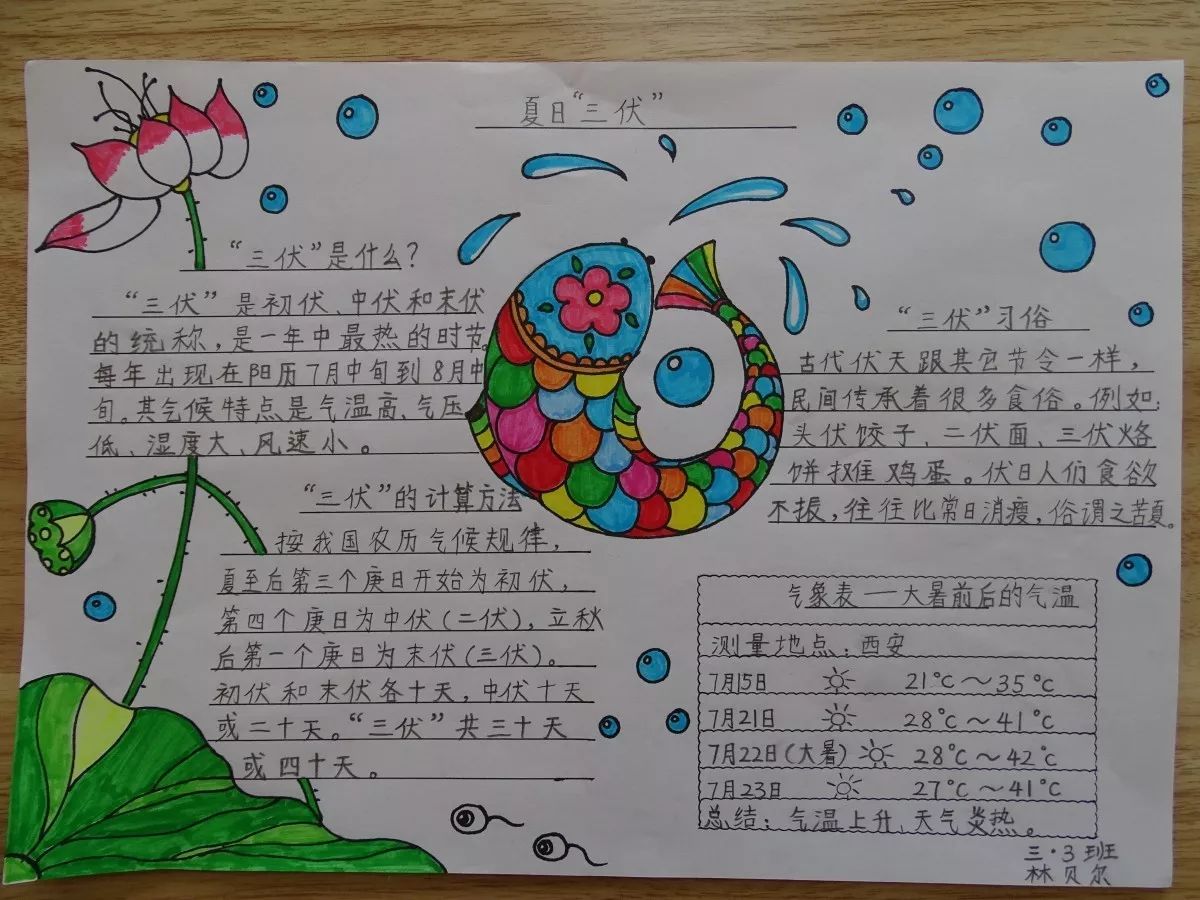 夏日“三伏”
“三伏”是什么？
“三伏”是初伏、中伏和末伏
的统称，是一年中最热的时节。
每年出现在阳历7月中旬到8月中
旬。其气候特点是气温高、气压
低、湿度大、风速小。
“三伏”的计算方法
按我国农历气候规律，
夏至后第三个庚日开始为初伏，
第四个庚日为中伏（二伏），立秋
后第一个庚日为末伏（三伏）。
初伏和末伏各十天，中伏十天
或二十天。“三伏”共三十天
或四十天。
“三伏”习俗
古代伏天跟其它节令一样，
民间传承着很多食俗。例如：
头伏饺子、二伏面、三伏烙
饼摊鸡蛋。伏日人们食欲
不振，往往比常日消瘦，俗谓之苦夏。
气象表——大暑前后的气温
测量地点：西安
7月15日 21℃～35℃
7月21日 28℃～41℃
7月22日（大暑） 28℃～42℃
7月23日 27℃～41℃
总结：气温上升、天气炎热。
三·3班
林贝尔